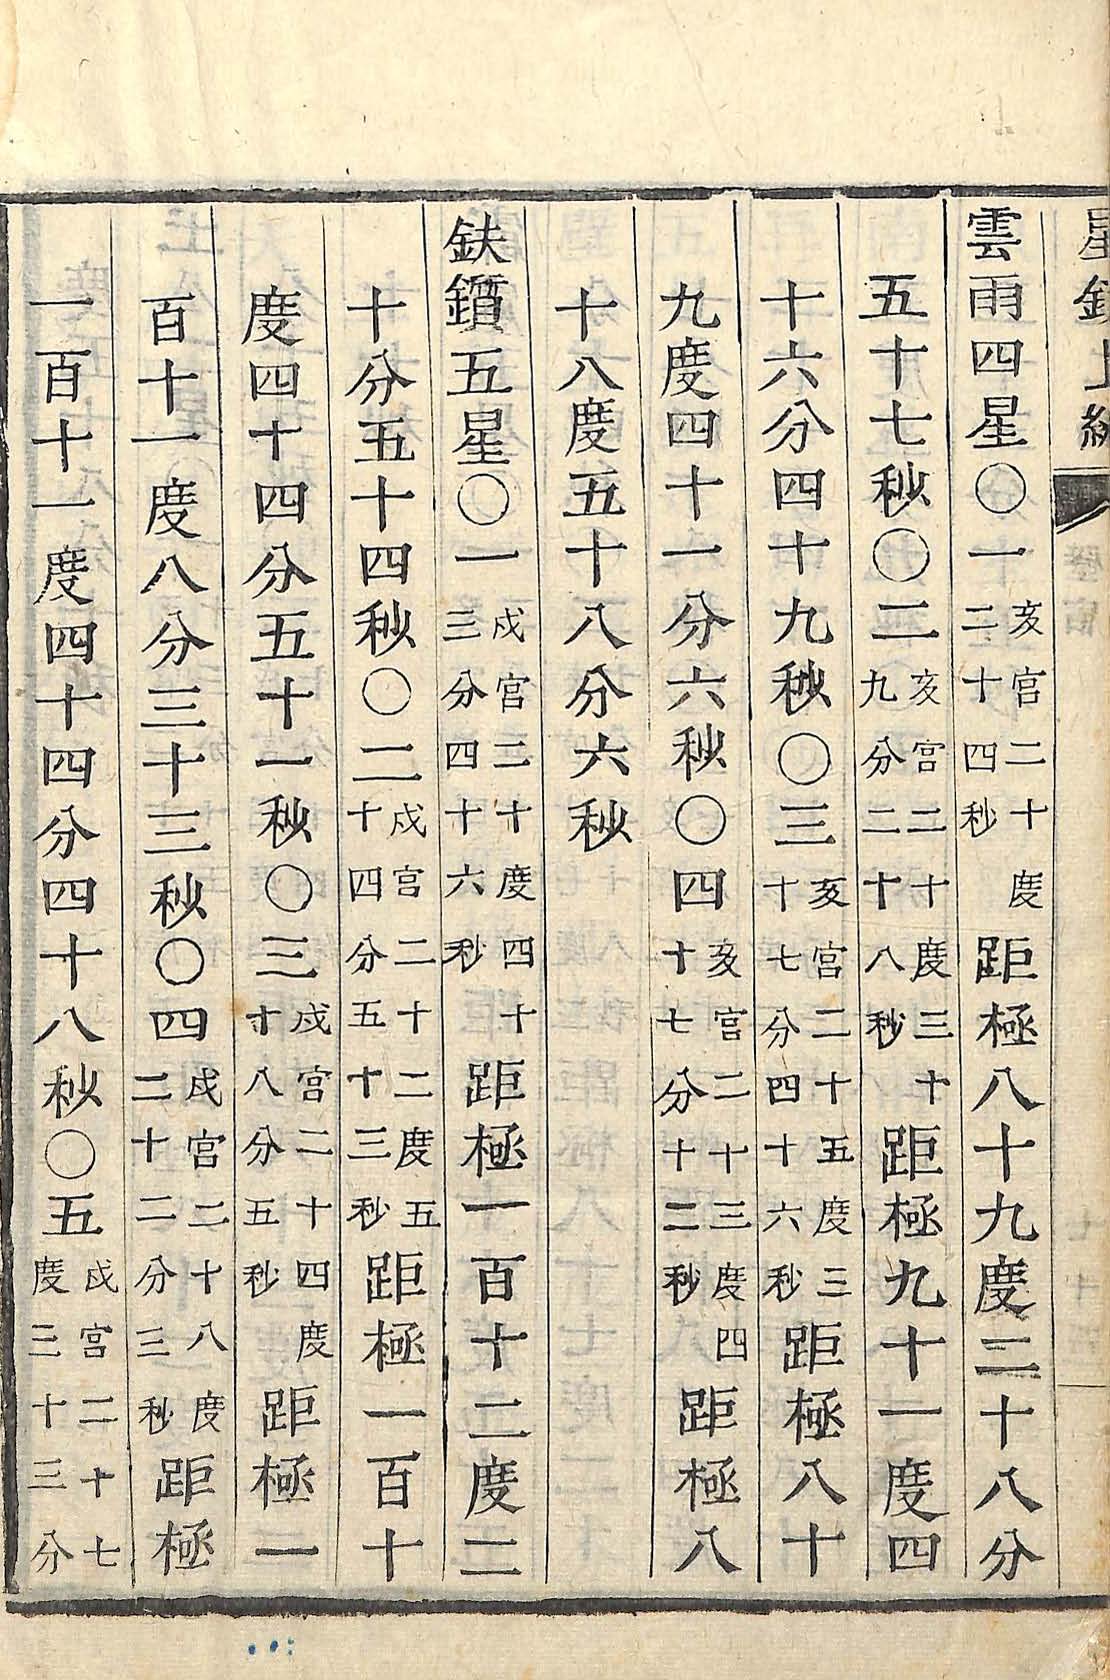 星鏡上編
雲雨四星〇一亥宮二十度二十四秒距極八十九度二十八分
五十七秒〇二亥宮二十度三十九分二十八秒距極九十一度四
十六分四十九秒〇三亥宮二十五度三十七分四十六秒距極八十
九度四十一分六秒〇四亥宮二十三度四十七分十二秒距極八
十八度五十八分六秒
鈇鑕五星〇一戌宮二十度四十三分四十六秒距極一百十二度二
十分五十四秒〇二戌宮二十二度五十四分五十三秒距極一百十
度四十四分五十一秒〇三戌宮二十四度十八分五秒距極一
百十一度八分三十三秒〇四戌宮二十八度二十二分三秒距極
一百十一度四十四分四十八秒〇五戌宮二十七度三十三分